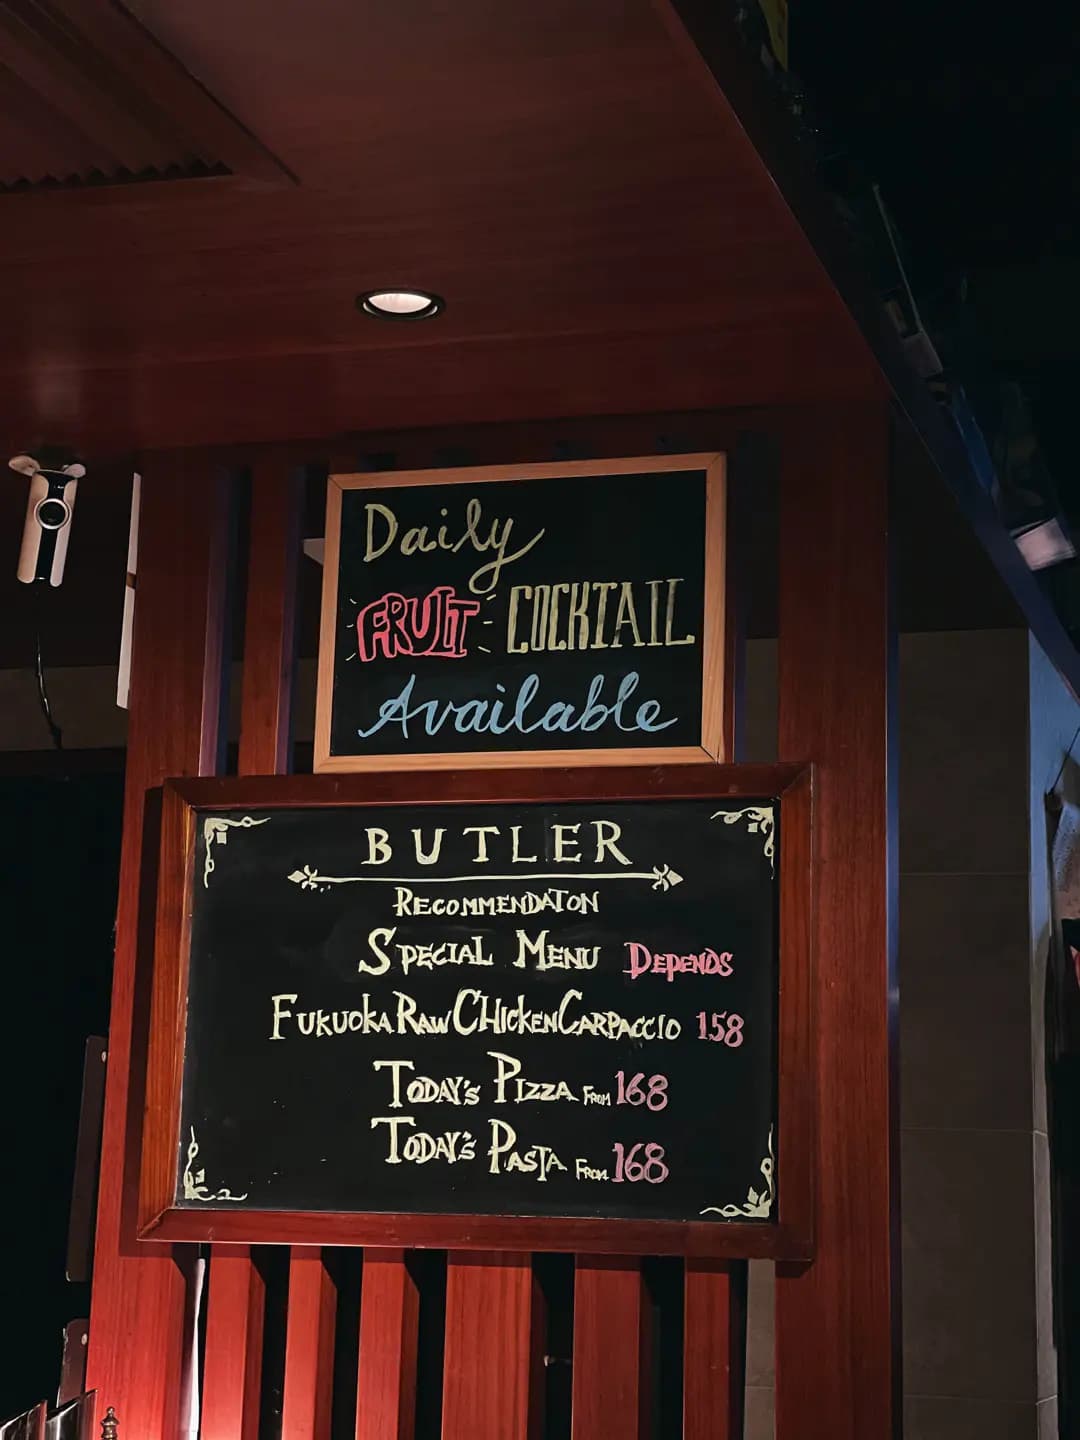 Daily
FRUIT COCKTAIL
Available
BUTLER
RECOMMENDATON
SPECIAL MENU DEPENDS
FUKUOKA RAW CHICKEN CARPACCIO 158
TODAY'S PIZZA FROM 168
TODAY'S PASTA FROM 168